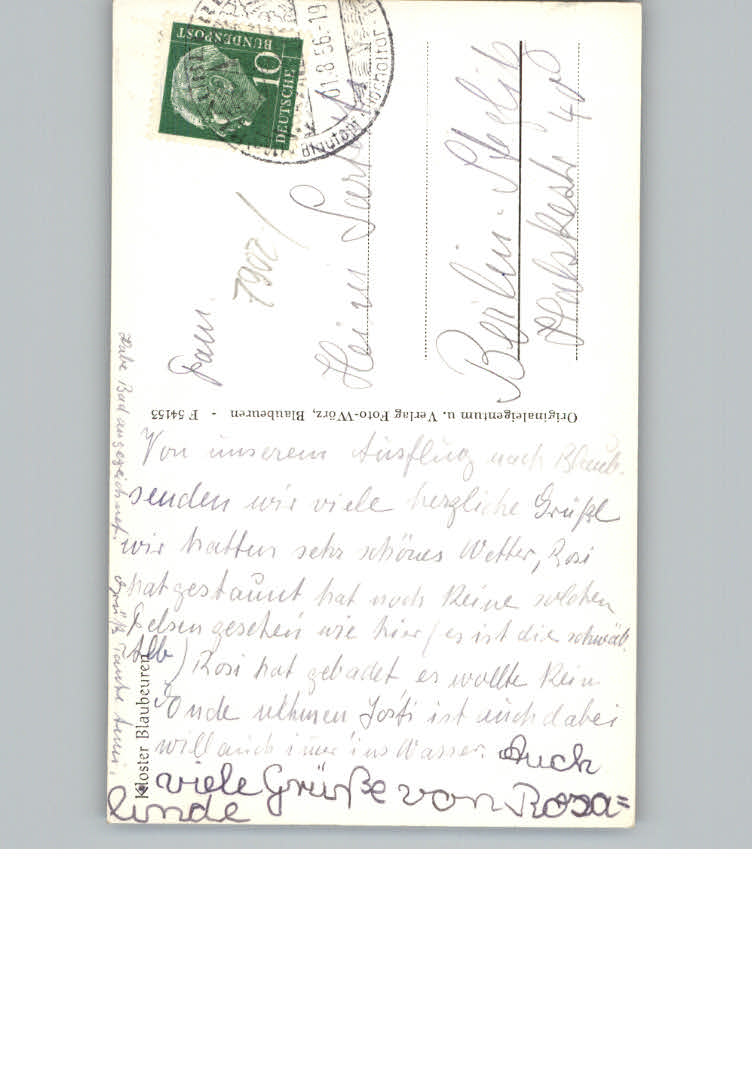 DEUTSCHE
BUNDESPOST
10
-1.8.56.-19
7902/
Fam.
Heinz
Berlin-Steglitz
Originaleigentum u. Verlag Foto-Wörz, Blaubeuren - F 54153
Von unserem Ausflug nach Blaub.
senden wir viele herzliche Grüße
wir hatten sehr schönes Wetter, Rosi
hat gestaunt hat noch keine solchen
Felsen gesehen wie hier (es ist die schwäb.
Alb) Rosi hat gebadet es wollte kein
Ende nehmen Josti ist auch dabei
will auch immer ins Wasser. Auch
viele Grüße von Rosa=
linde
Habe Bad ausgezeichnet.
Grüße Tante
Kloster Blaubeuren